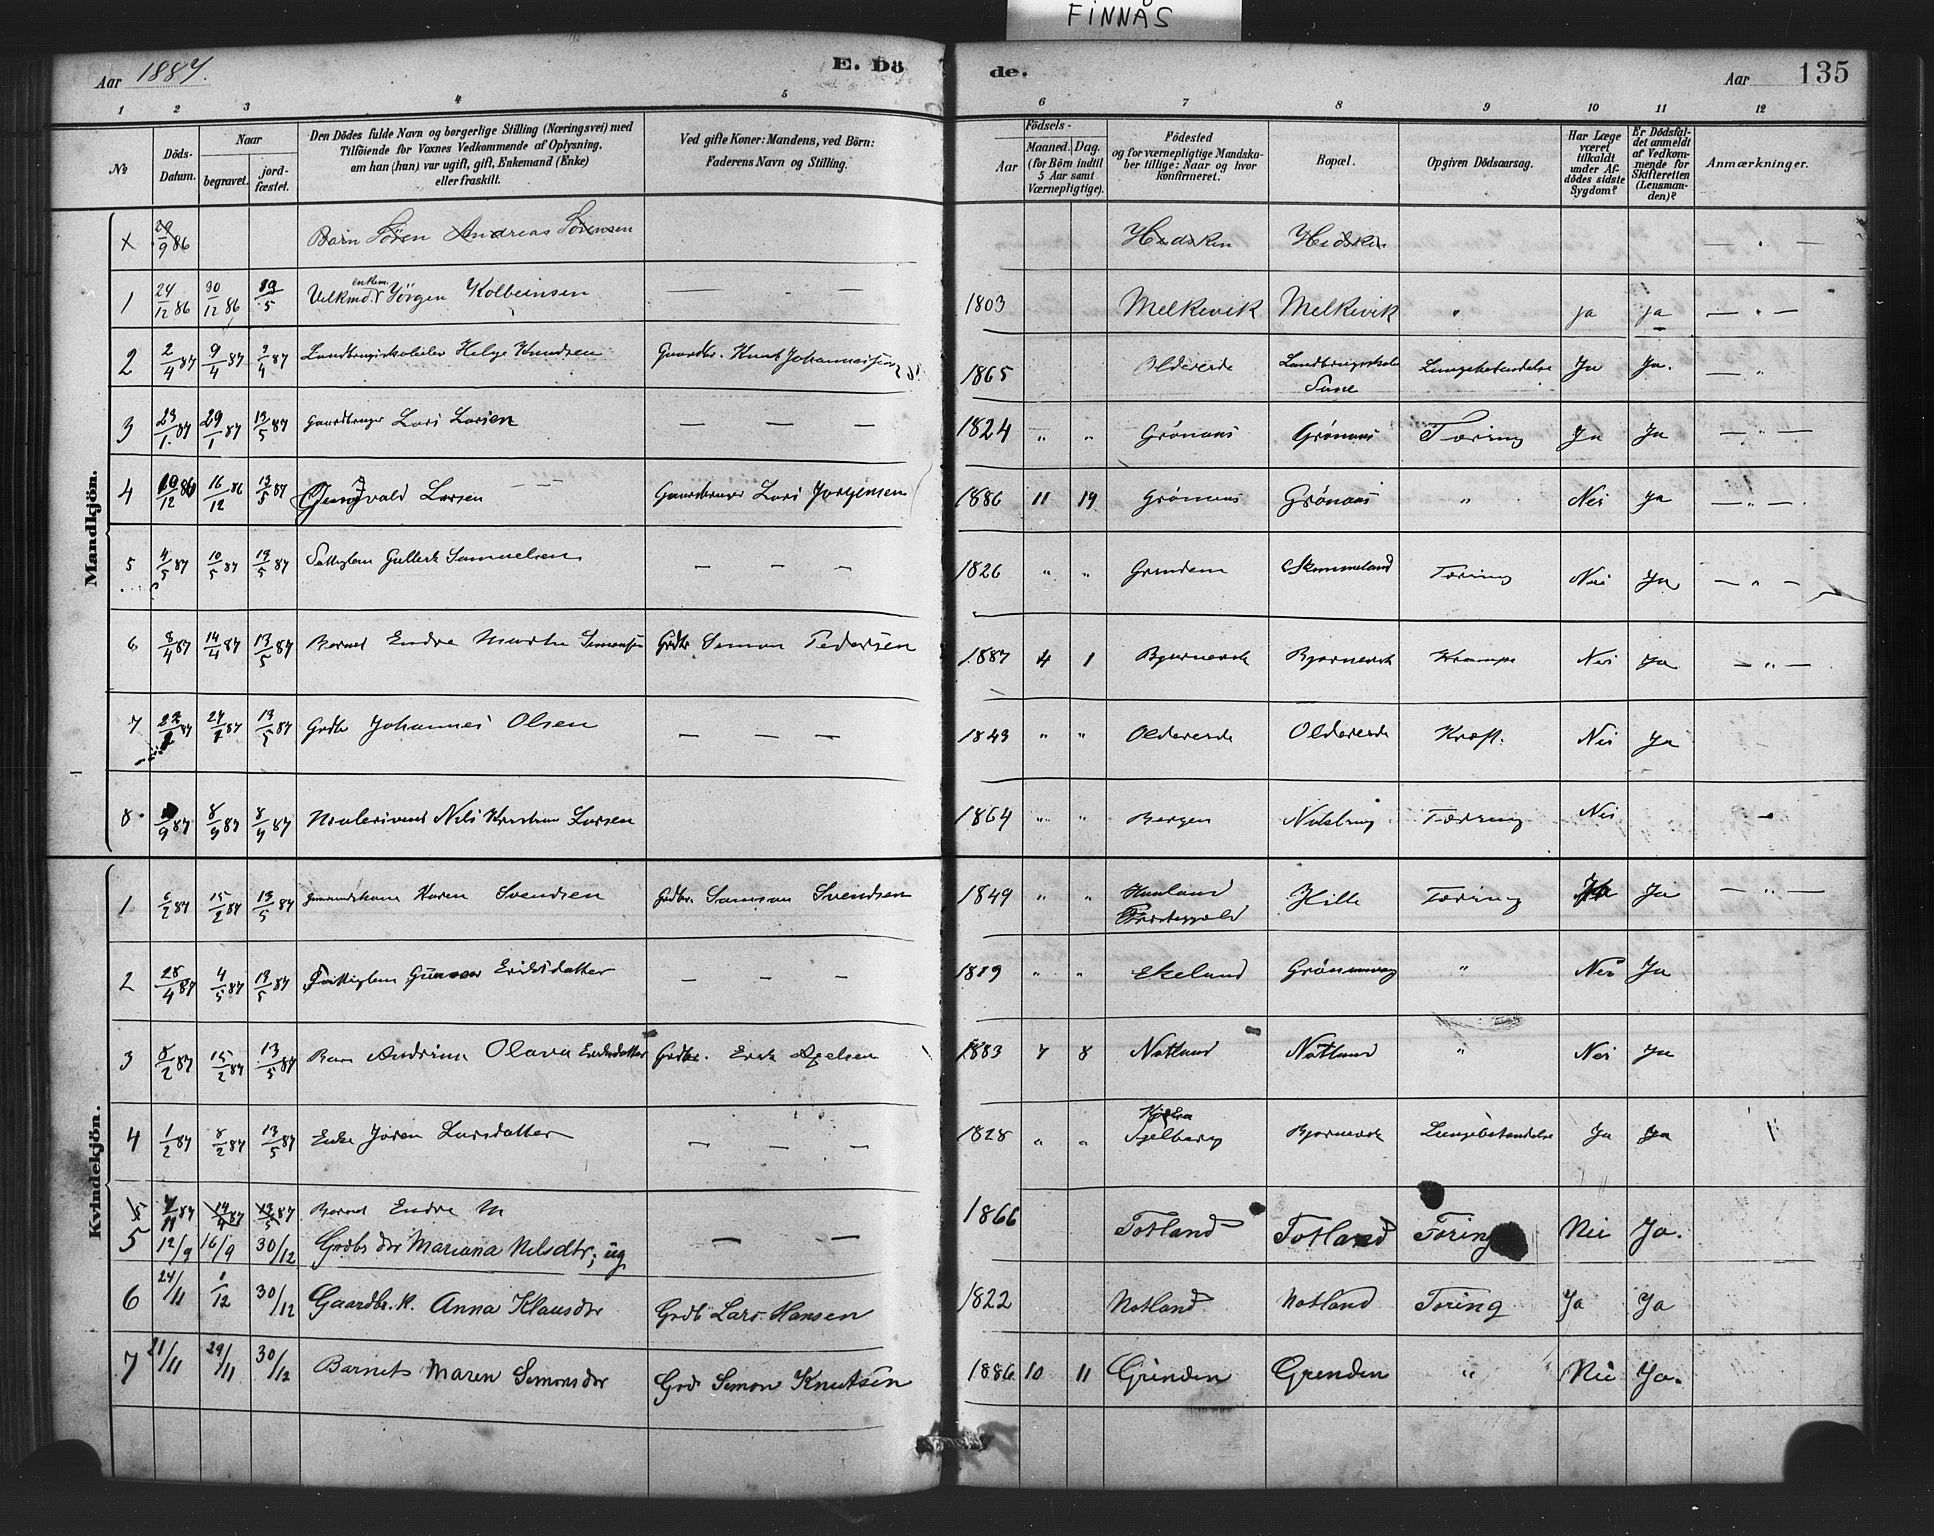 FINNÅS
Aar 1887.
E. Dö
de.
Aar
135
1 2 3 4 5 6 7 8 9 10 11 12
No
Döds-Datum.
Naar
begravet.
jord-fæstet.
Den Dödes fulde Navn og borgerlige Stilling (Næringsvei) med
Tilföiende for Voxnes Vedkommende af Oplysning,
om han (hun) var ugift, gift, Enkemand (Enke)
eller fraskilt.
Ved gifte Koner: Mandens, ved Börn:
Faderens Navn og Stilling.
Födsels-
Aar
Maaned. Dag.
(for Börn indtil
5 Aar samt
Værnepligtige).
Födested
og for værnepligtige Mandska-
ber tillige: Naar og hvor
konfirmeret.
Bopæl.
Opgiven Dödsaarsag.
Har Læge
været
tilkaldt
under Af-
dödes sidste
Sygdom?
Er Dödsfal-
det anmeldt
af Vedkom-
mende for
Skifteretten
(Lensman-
den)?
Anmærkninger.
Mandkjön.
x 29/9 86 Barn Sören Andreas Sörensen
1 24/12 86 30/12 86 19/5 enkem. Jörgen Kolbeinsen — — 1803 Melkevik Melkevik " ja ja — " —
2 2/4 87 9/4 87 9/4 87 Helge Knudsen Gaardbr. Knut Johannessen 1865 Landbrugsskole Lungebetændelse Ja Ja. — "
3 23/1 87 29/1 87 13/5 87 Gaardbruger Lars Larsen — — — 1824 " " Grönaas Grönaas Tæring Ja Ja — " —
4 19/12 86 16/12 86 13/5 87 Larsen Gaardbruger Lars Jörgensen 1886 11 19 Grönaas Grönaas " Nei Ja — " —
5 4/5 87 10/5 87 13/5 87 Gullerk Samuelsen — — — 1826 " " Grindem Skimmeland Tæring Nei Ja — " —
6 8/4 87 14/4 87 13/5 87 Barnet Endre Martin Simonsen Grdbr Simon Pedersen 1887 4 1 Bjornevik Bjornevik Krampe Nei Ja — " —
7 87 87 13/5 87 Grdbr Johannes Olsen — — — 1843 " " Oldereide Oldereide Kræft. Nei Ja
8 /9 87 8/9 87 8/9 87 Nils Kristian Larsen 1864 " " Bergen Tæring Nei
Kvindekjön.
1 6/2 87 15/2 87 13/5 87 Karen Svendsen Grdbr. Samson Svendsen 1849 " " Præstegjeld Hille Tæring Ja Ja — " —
2 28/4 87 4/5 87 13/5 87 Eriksdatter — — — 1819 " " Ekeland " Nei Ja
3 8/2 87 15/2 87 13/5 87 Barn Andrina Olava Eriksdatter Grdbr. Erik Apelsen 1883 7 8 Notland Notland " Nei Ja
4 1/2 87 8/2 87 13/5 87 Enke Joren Larsdatter — — — 1828 " " Fjelberg Bjornevik Lungebetændelse Ja Ja
5 87 14/4 87 13/5 87 Barnet Endre M
5 12/9 16/9 30/12 Grdbs dtr Mariana Nilsdtr; ug — — 1866 Totland Totland Tæring Nei Ja.
6 24/11 1/12 30/12 Gaardbr. k. Anna Klausdtr Grdb Lars Hansen 1822 Notland Notland Tæring Ja Ja
7 21/11 29/11 30/12 Barnet Maren Simonsdtr Grdb Simon Knutsen 1886 10 11 Grinden Grenden " Nei Ja.